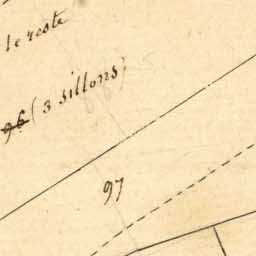 le reste
96 (3 sillons)
97